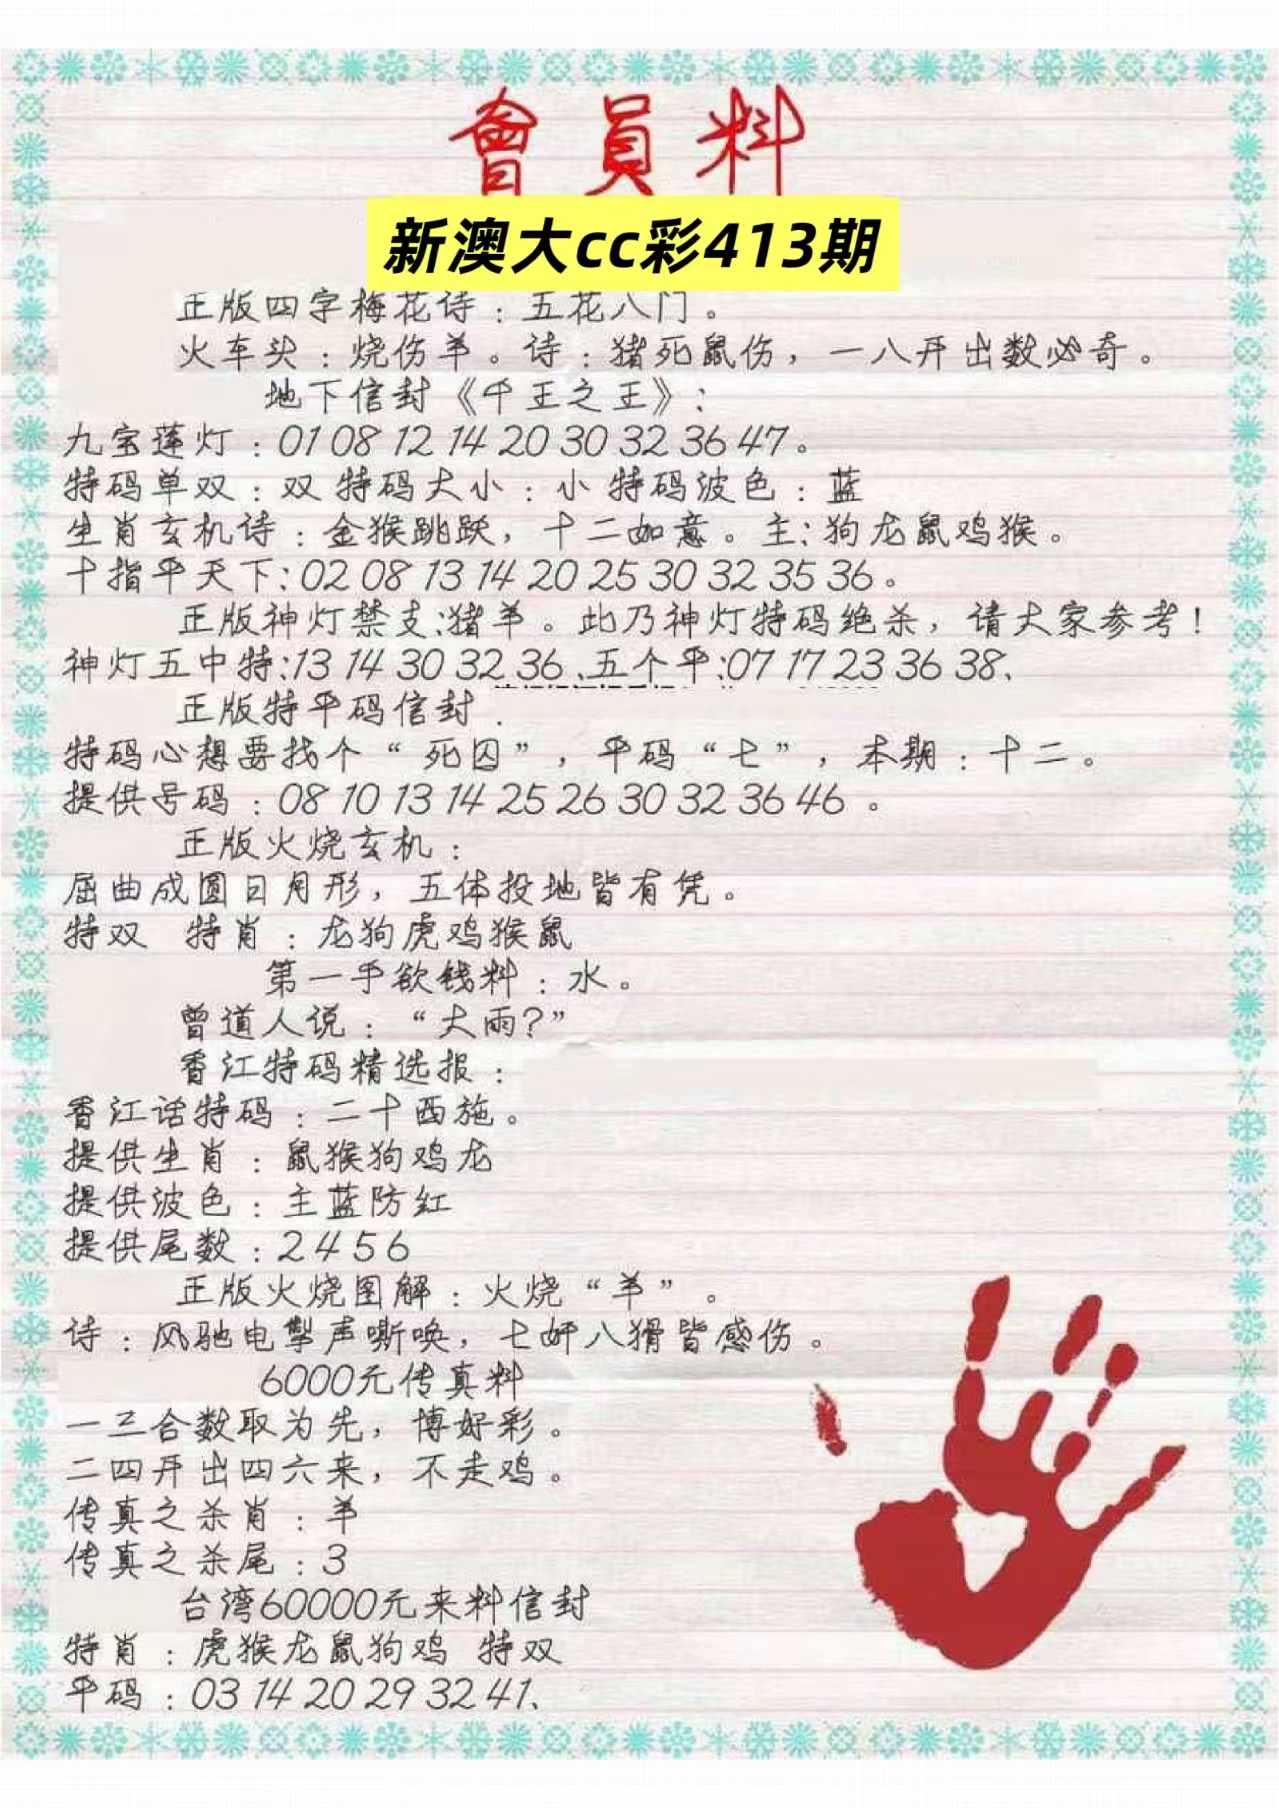 會員料
新澳大cc彩413期
正版四字梅花诗：五花八门。
火车头：烧伤羊。诗：猪死鼠伤，一八开出数必奇。
地下信封《千王之王》：
九宝莲灯：01 08 12 14 20 30 32 36 47。
特码单双：双 特码大小：小 特码波色：蓝
生肖玄机诗：金猴跳跃，十二如意。主：狗龙鼠鸡猴。
十指平天下：02 08 13 14 20 25 30 32 35 36。
正版神灯禁支：猪羊。此乃神灯特码绝杀，请大家参考！
神灯五中特：13 14 30 32 36、五个平：07 17 23 36 38、
正版特平码信封．
特码心想要找个“死囚”，平码“七”，本期：十二。
提供号码：08 10 13 14 25 26 30 32 36 46 。
正版火烧玄机：
屈曲成圆日月形，五体投地皆有凭。
特双 特肖：龙狗虎鸡猴鼠
第一手欲钱料：水。
曾道人说：“大雨？”
香江特码精选报：
香江话特码：二十西施。
提供生肖：鼠猴狗鸡龙
提供波色：主蓝防红
提供尾数：2 4 5 6
正版火烧图解：火烧“羊”。
诗：风驰电掣声嘶唤，七奸八猾皆感伤。
6000元传真料
一三合数取为先，博好彩。
二四开出四六来，不走鸡。
传真之杀肖：羊
传真之杀尾：3
台湾60000元来料信封
特肖：虎猴龙鼠狗鸡 特双
平码：03 14 20 29 32 41、